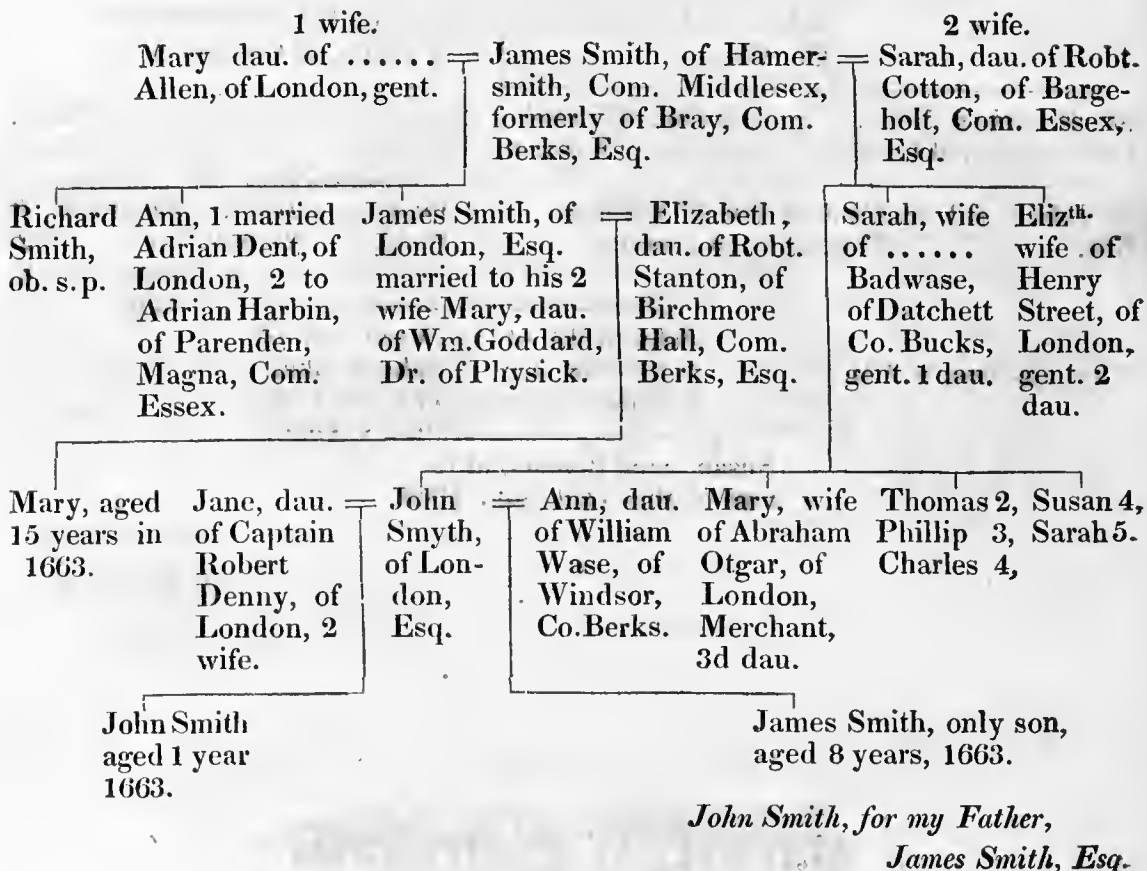 1 wife.
Mary dau. of ...... =
Allen, of London, gent.
James Smith, of Hamer-
smith, Com. Middlesex,
formerly of Bray, Com.
Berks, Esq.
2 wife.
= Sarah, dau. of Robt.
Cotton, of Barge-
holt, Com. Essex,
Esq.
Richard
Smith,
ob. s. p.
Ann, 1 married
Adrian Dent, of
London, 2 to
Adrian Harbin,
of Parenden,
Magna, Com.
Essex.
James Smith, of =
London, Esq.
married to his 2
wife Mary, dau.
of Wm. Goddard,
Dr. of Physick.
Elizabeth,
dau. of Robt.
Stanton, of
Birchmore
Hall, Com.
Berks, Esq.
Sarah, wife
of ......
Badwase,
of Datchett
Co. Bucks,
gent. 1 dau.
Elizth.
wife of
Henry
Street, of
London,
gent. 2
dau.
Mary, aged
15 years in
1663.
Jane, dau. =
of Captain
Robert
Denny, of
London, 2
wife.
John =
Smyth,
of Lon-
don,
Esq.
Ann, dau.
of William
Wase, of
Windsor,
Co. Berks.
Mary, wife
of Abraham
Otgar, of
London,
Merchant,
3d dau.
Thomas 2,
Phillip 3,
Charles 4,
Susan 4,
Sarah 5.
John Smith
aged 1 year
1663.
James Smith, only son,
aged 8 years, 1663.
John Smith, for my Father,
James Smith, Esq.